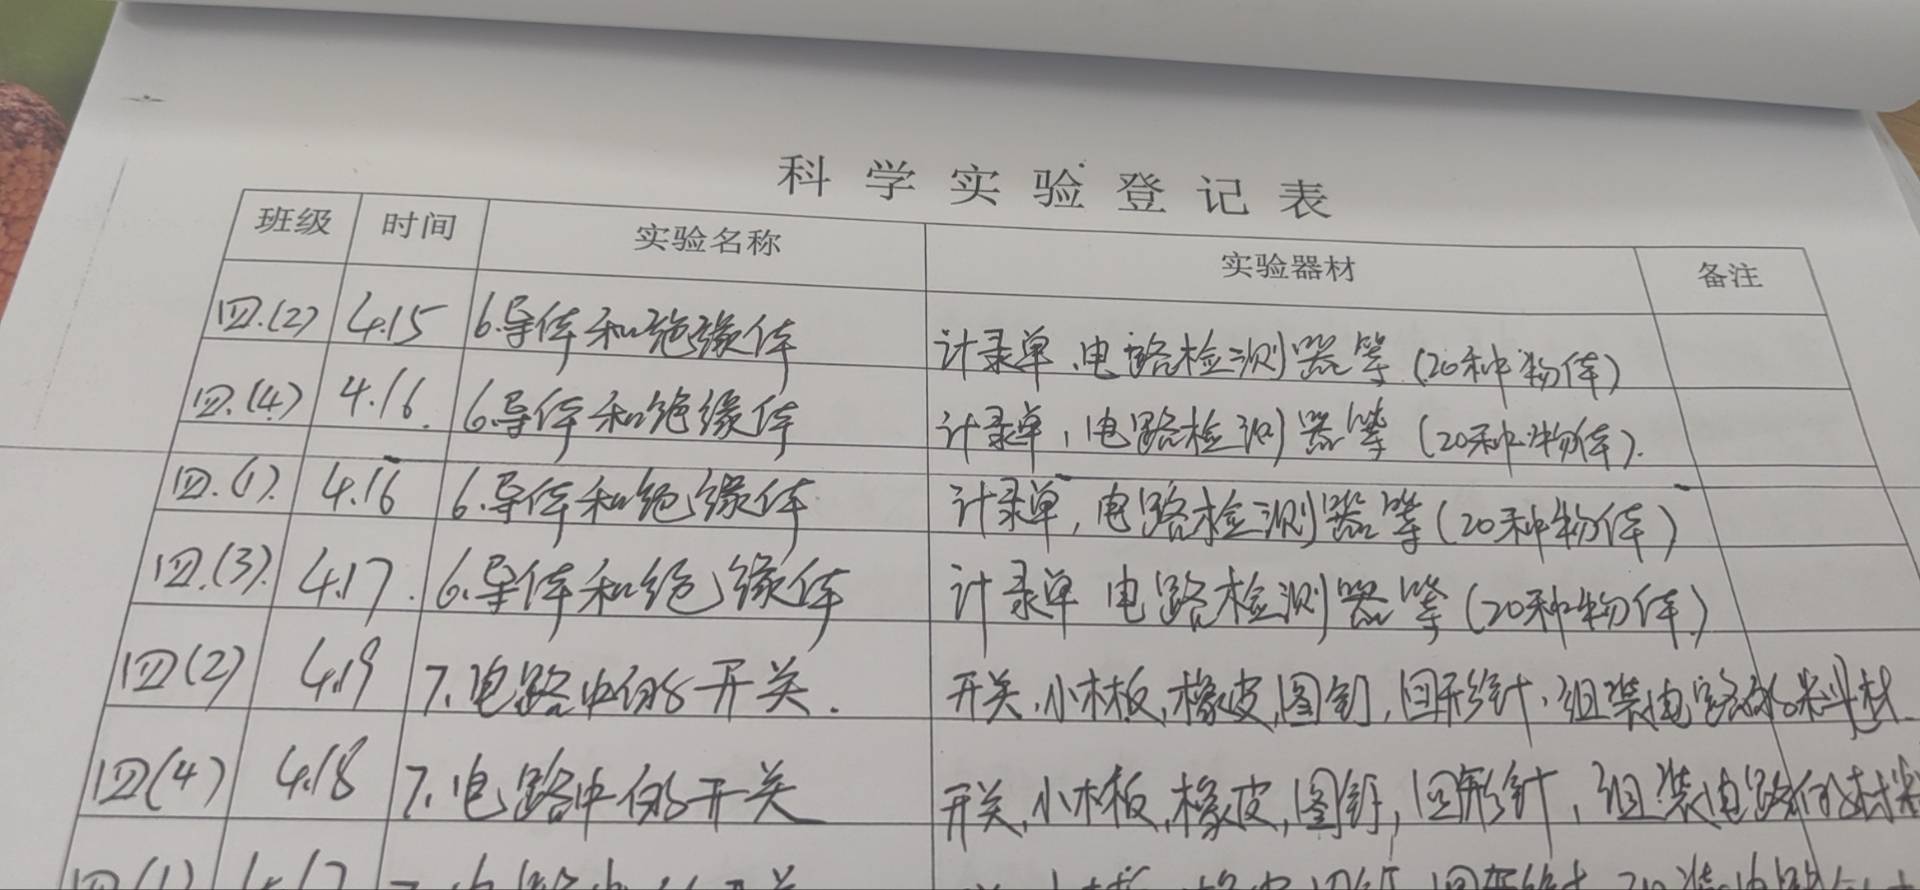 科学实验登记表
班级 时间 实验名称 实验器材 备注
四.(2) 4.15 6.导体和绝缘体 计录单、电路检测器等(20种物体)
四.(4) 4.16. 6.导体和绝缘体 计录单,电路检测器等(20种物体).
四.(1). 4.16 6.导体和绝缘体 计录单,电路检测器等(20种物体)
四.(3). 4.17. 6.导体和绝缘体 计录单 电路检测器等(20种物体)
四(2) 4.19 7.电路中的开关. 开关,小木板,橡皮,图钉,回形针,组装电路的米斗材
四(4) 4.18 7.电路中的开关 开关,小木板,橡皮,图钉,回形针,组装电路的材料
四(1) 电路中的开关